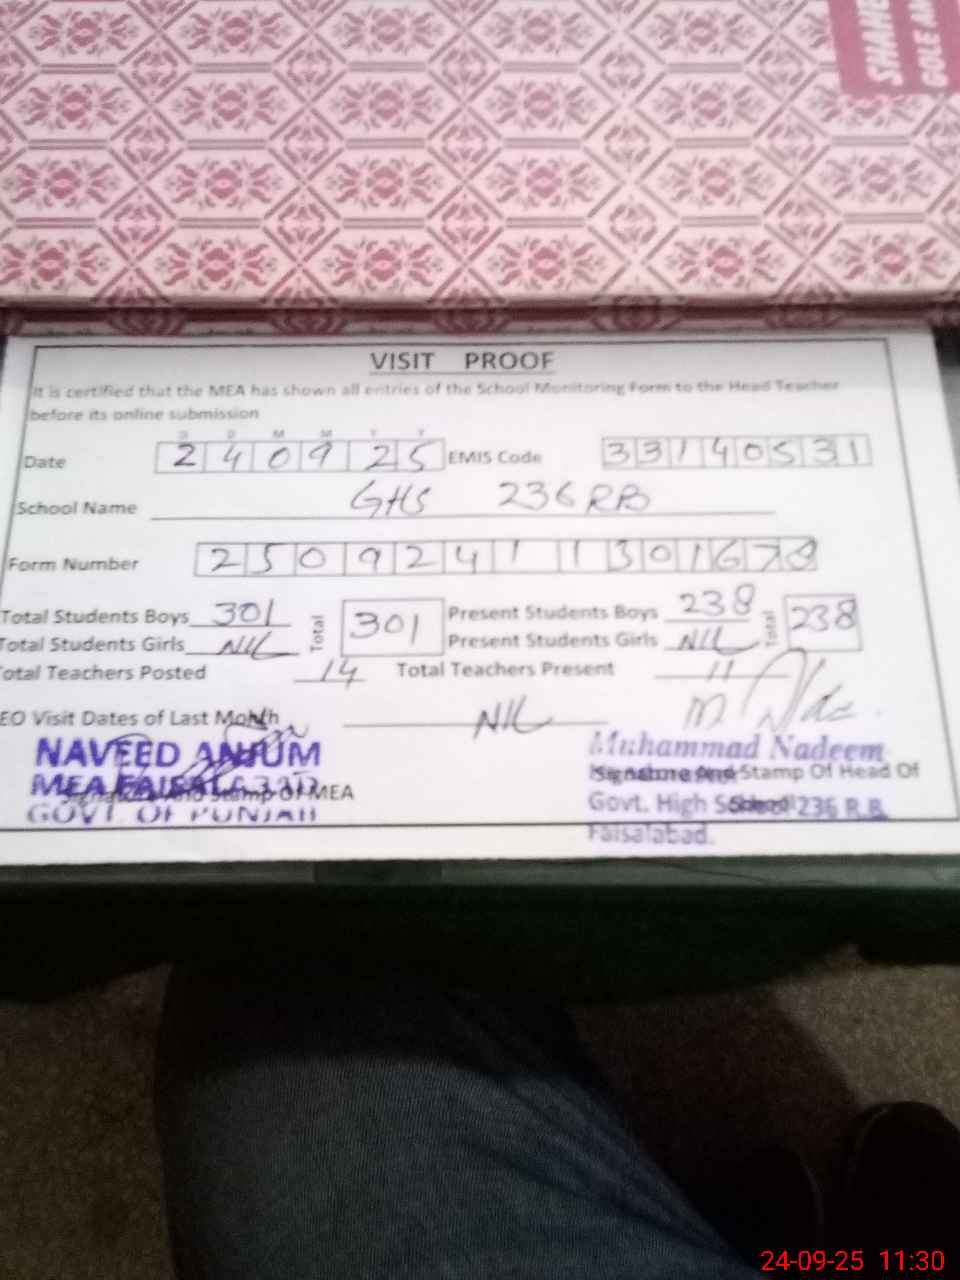 SHAHE
GOLE AM
VISIT PROOF
It is certified that the MEA has shown all entries of the School Monitoring Form to the Head Teacher
before its online submission
D D M M Y Y
Date 2 4 0 9 2 5 EMIS Code 3 3 1 4 0 5 3 1
School Name GHS 236 RB
Form Number 2 5 0 9 2 4 1 1 3 0 1 6 7 8
Total Students Boys 301 Total 301 Present Students Boys 238 Total 238
Total Students Girls NIL Present Students Girls NIL
Total Teachers Posted 14 Total Teachers Present 11
EO Visit Dates of Last Month NIL
NAVEED ANJUM
MEA FAISALABAD
Signature And Stamp Of MEA
GOVT OF PUNJAB
Muhammad Nadeem
Signature And Stamp Of Head Of
School
Govt. High School 236 R.B
Faisalabad.
24-09-25 11:30